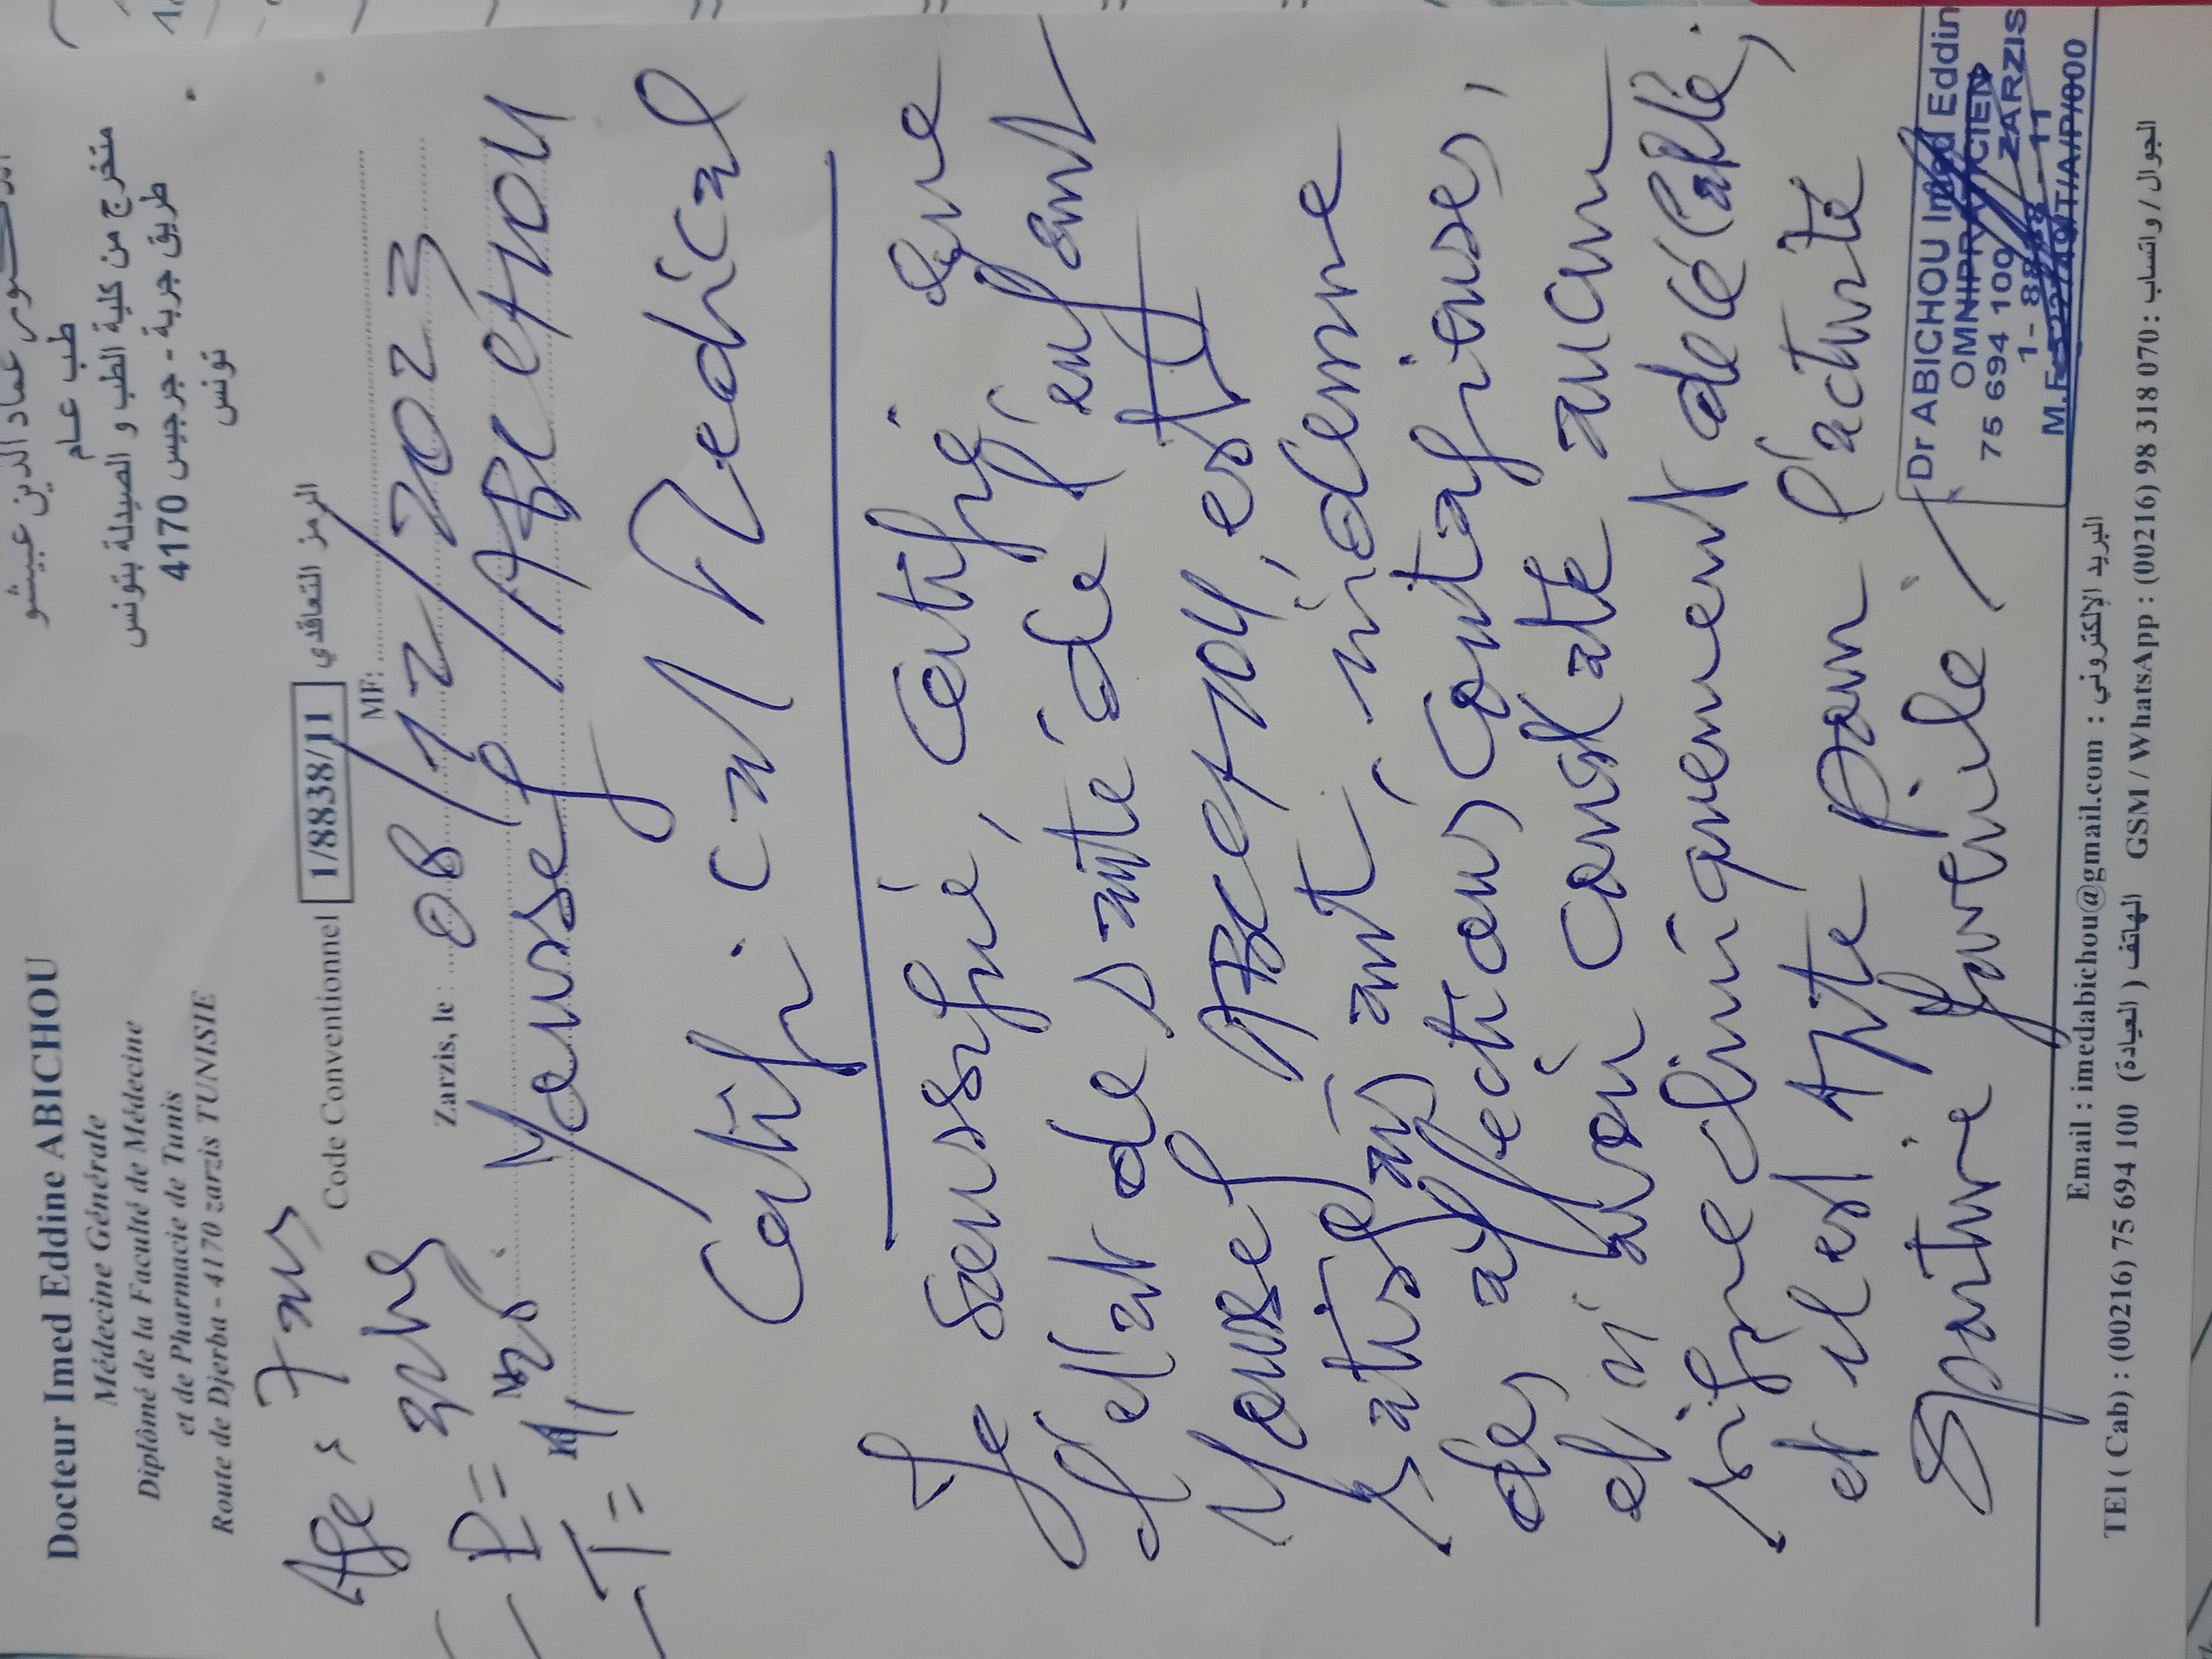 Docteur Imed Eddine ABICHOU
Médecine Générale
Diplômé de la Faculté de Médecine
et de Pharmacie de Tunis
Route de Djerba - 4170 zarzis TUNISIE
عماد الدين عبيشو
طب عـــام
متخرج من كلية الطب و الصيدلة بتونس
طريق جربة - جرجيس 4170
تونس
Code Conventionnel 1/8838/11 الرمز التعاقدي
MF:
Age : 7 ans
Zarzis, le : 08/12/2023
P =
Yousef
T =
Certificat Médical
Je soussigné, certifie que
l'état de santé de l'enfant
Yousef est
satisfaisant, indemne
des affections contagieuses,
et n'avoir constaté aucun
signe cliniquement décélable,
et il est Apte Dans l'activité
Sportive
Dr ABICHOU Imed Eddin
OMNIPRATICIEN
75 694 100 ZARZIS
1- 8838 - 11
Email : imedabichou@gmail.com : البريد الإلكتروني
TEl ( Cab) : (00216) 75 694 100 (العيادة) الهاتف GSM / WhatsApp : (00216) 98 318 070 : الجوال / واتساب